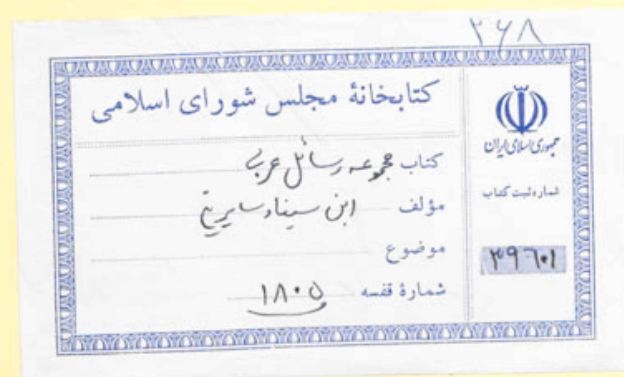 ۳۶۸
کتابخانهٔ مجلس شورای اسلامی
کتاب مجموعه رسائل عربی
مؤلف ابن سینا و سایرین
موضوع
شمارهٔ قفسه ۱۸۰۵
جمهوری اسلامی ایران
شماره ثبت کتاب
۳۹۶۰۱